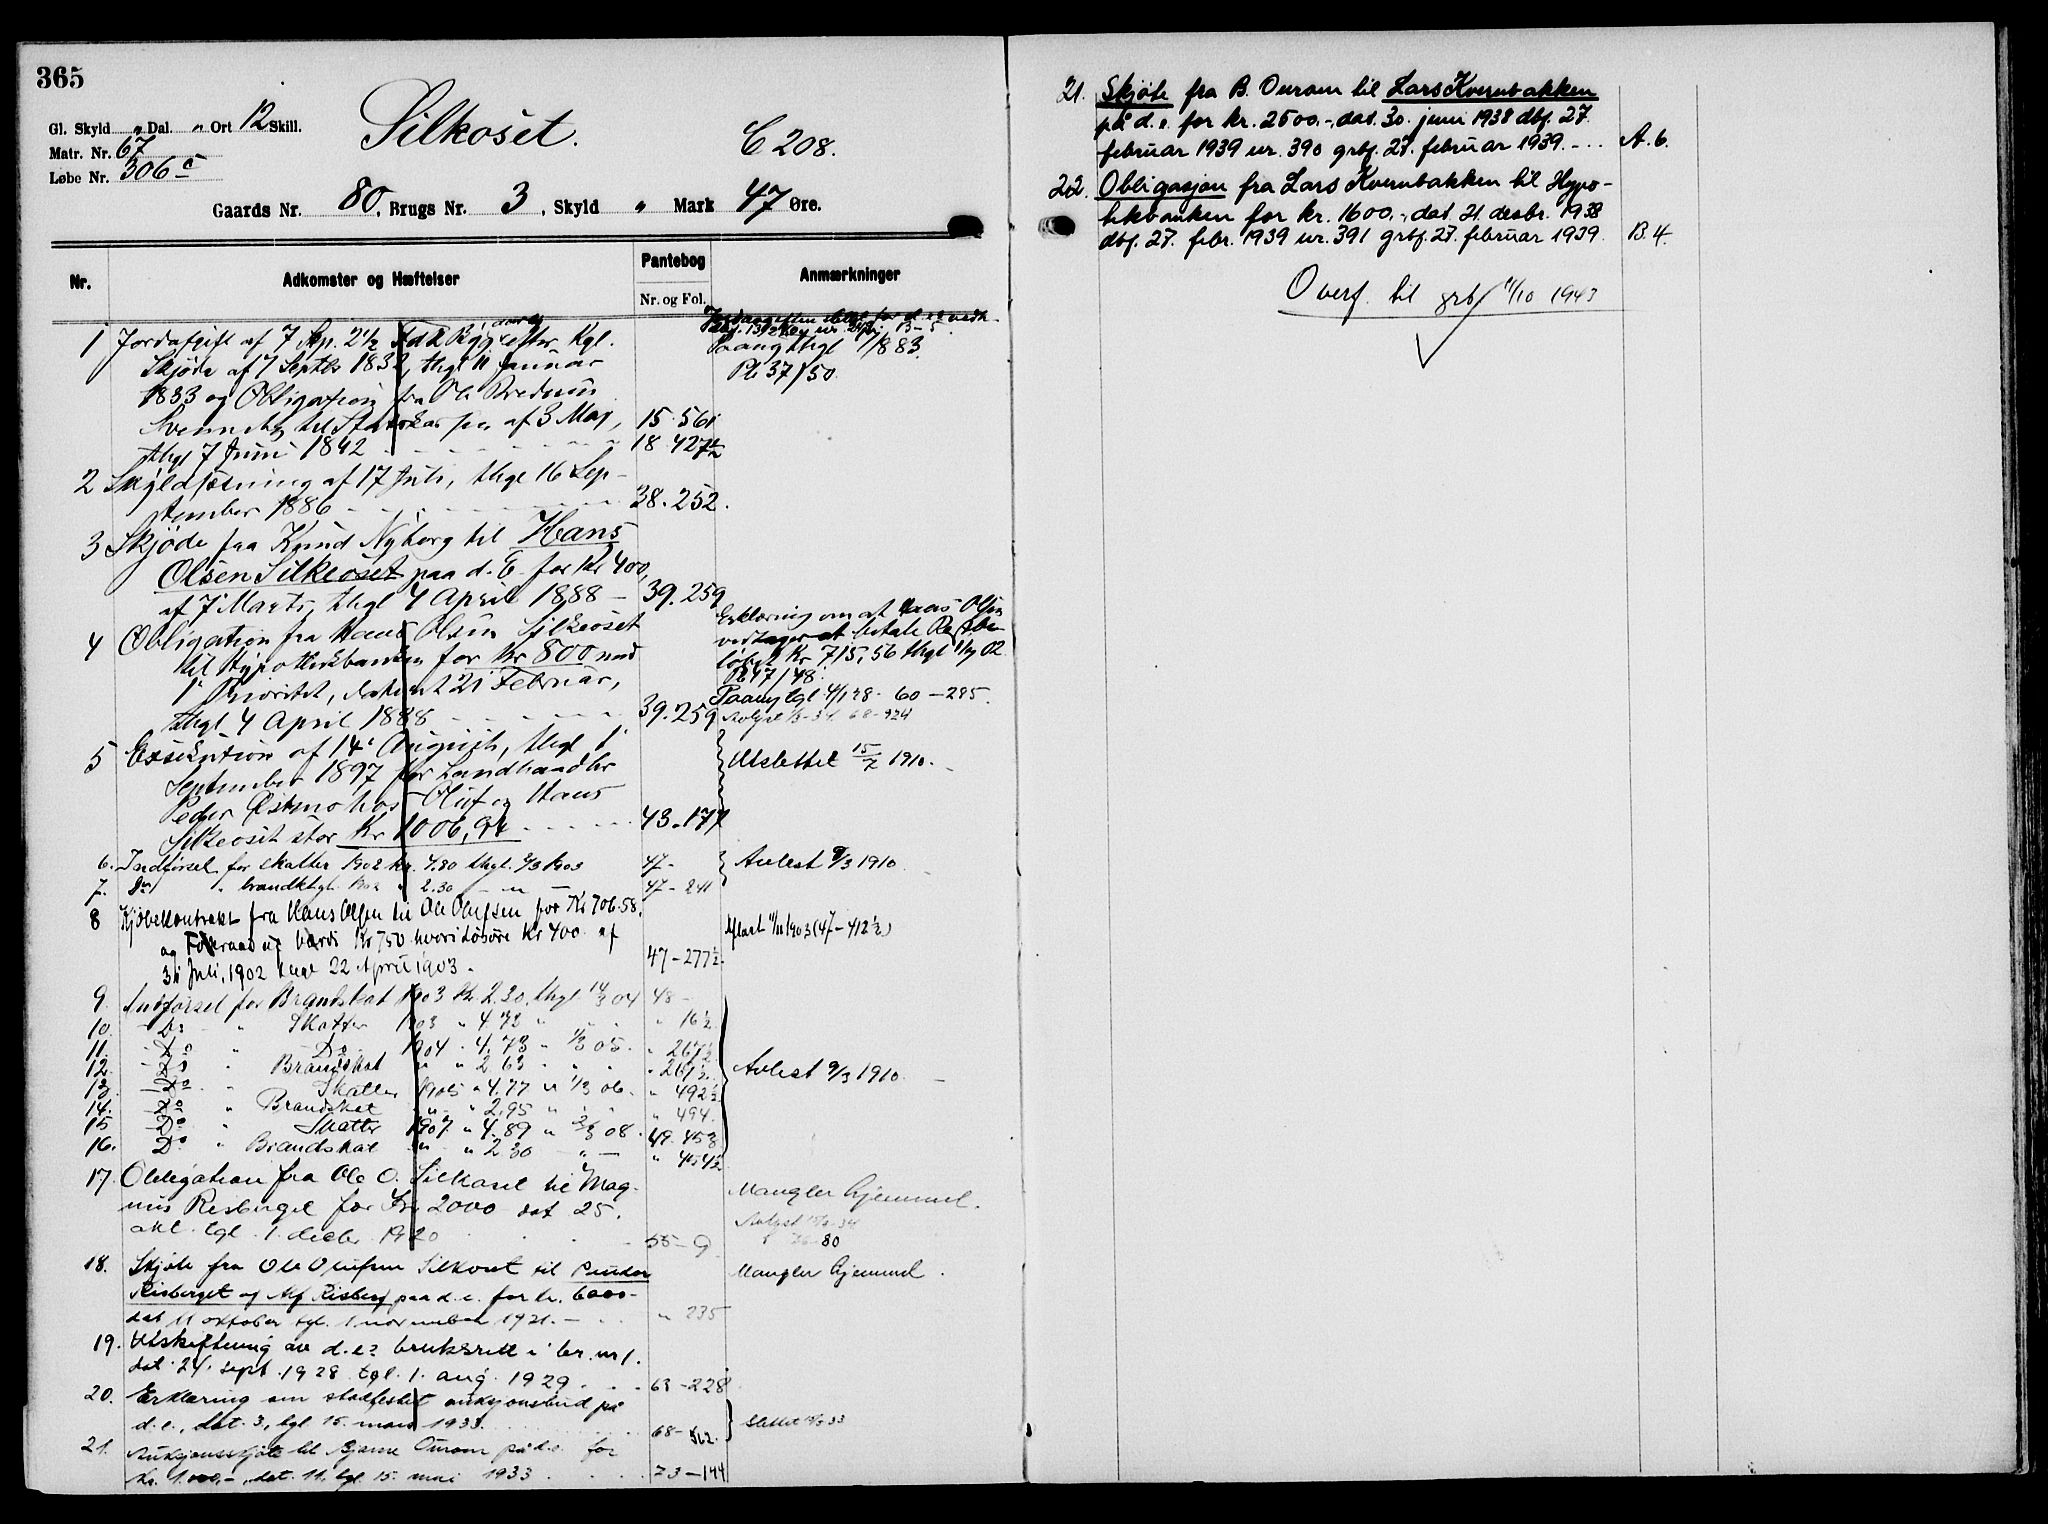 365
Gl. Skyld „ Dal. „ Ort 12 Skill.
Silkoset.
C 208.
Matr. Nr. 67
Løbe Nr. 306 c
Gaards Nr. 80, Brugs Nr. 3, Skyld „ Mark 47 Øre.
Nr. Adkomster og Hæftelser Pantebog Anmærkninger
Nr. og Fol.
1 Jordafgift af 7 Skp. 2½ efter Kgl.
Skjøde af 17 Septbr 1832, thgl 11 Januar
1833 og Obligation fra Ole
til af 3 Maj, 15. 561
thgl 7 Juni 1842 18 427½
Paaanf thgl 1/8 83.
Pb 37/50.
2 Skyldsætning af 17 Juli, thgl 16 Sep-
tember 1886 38. 252.
3 Skjøde fra Knud Nyborg til Hans
Olsen Silkeoset paa d. E. for Kr 400,
af 7 Marts, thgl 4 April 1888 – 39. 259
4 Obligation fra Hans Olsen Silkeoset
til Hypothekbanken for Kr 800 mod
1 Prioritet, datert 21 Februar,
thgl 4 April 1888 39. 259
Erklæring om at Hans Olsen
vedtager at betale Restbe-
løbet Kr 715,56 thgl 02
Pb 47/48.
60 – 285.
5 Exsekution af 14 August, thgl 1
September 1897 for Landhandler
Peder Østmo hos Oluf og Hans
Silkeoset stor Kr 1006,94 43. 177
Udslettet 15/7 1910.
6. Indførsel for skatter 1902 kr. 4.80 thgl. 3/3 1903 47 –
7. Do „ brandktgt. 1902 „ 2.30 – „ – 47 – 241
Avlest 9/3 1910
8 Kjøbekontrakt fra Hans Olsen til Ole Olufsen for Kr 706.58.
og Føderaad af Værdi Kr 750 hvori løsøre Kr 400 af
31 Juli, 1902 thgl 22 April 1903. 47 – 277½
Aflæst 11/11 1903 (47 – 412½)
9. Indførsel for Brandskat 1903 Kr. 2.30. thgl 14/3 04 48 –
10. Do „ Skatter 1903 „ 4.73 „ „ 16½
11. Do „ Do 1904 „ 4.73 „ 1/3 05. „ 267½
12. Do Brandskat „ „ 2.63 „ 267½
13. Do „ Skatter 1905 „ 4.77 „ 1/3 06. „ 492½
14. Do „ Brandskat „ „ 2.95 „ „ 494.
15 Do „ Skatter 1907 „ 4.89 „ 3/3 08. 49. 453
16. Do „ Brandskat „ „ 2 30 – „ – „ 454½
Avlest 9/3 1910.
17. Obligation fra Ole O. Silkoset til Mag-
nus Risberget for Kr. 2000 dat 25.
okt. tgl. 1. decbr 1920 55 – 9
Mangler hjemmel.
80
18. Skjøte fra Ole Olufsen Silkoset til Peder
Risberget og Alf Risberg paa d. e. for kr. 6000 –
dat 11 oktober tgl. 1 november 1921. – „ 235
Mangler hjemmel.
19. Utskiftning av d. es bruksrett i br. nr 1.
dat. 24. sept. 1928 tgl. 1. aug. 1929. 63 – 228
20. Erklæring om stadfestet auksjonsbud på
d. e., dat. 3, tgl. 15. mars 1933. 68 – 562.
Slettet
21. Auksjonsskjøte til Bjarne Ouram på d. e. for
kr. 1.000,–, dat. 11. tgl. 15. mai 1933. 73 – 144
21. Skjøte fra B. Ouram til Lars Kvernbakken
på d. e. for kr. 2500.–, dat. 30. juni 1938 dbf. 27.
februar 1939 nr. 390 grbf. 27. februar 1939. – A. 6.
22. Obligasjon fra Lars Kvernbakken til Hypo-
tekbanken for kr. 1600.–, dat. 21. desbr. 1938
dbf. 27. febr. 1939 nr. 391 grbf. 27. februar 1939. B. 4.
Overf. til grbf 11/10 1943